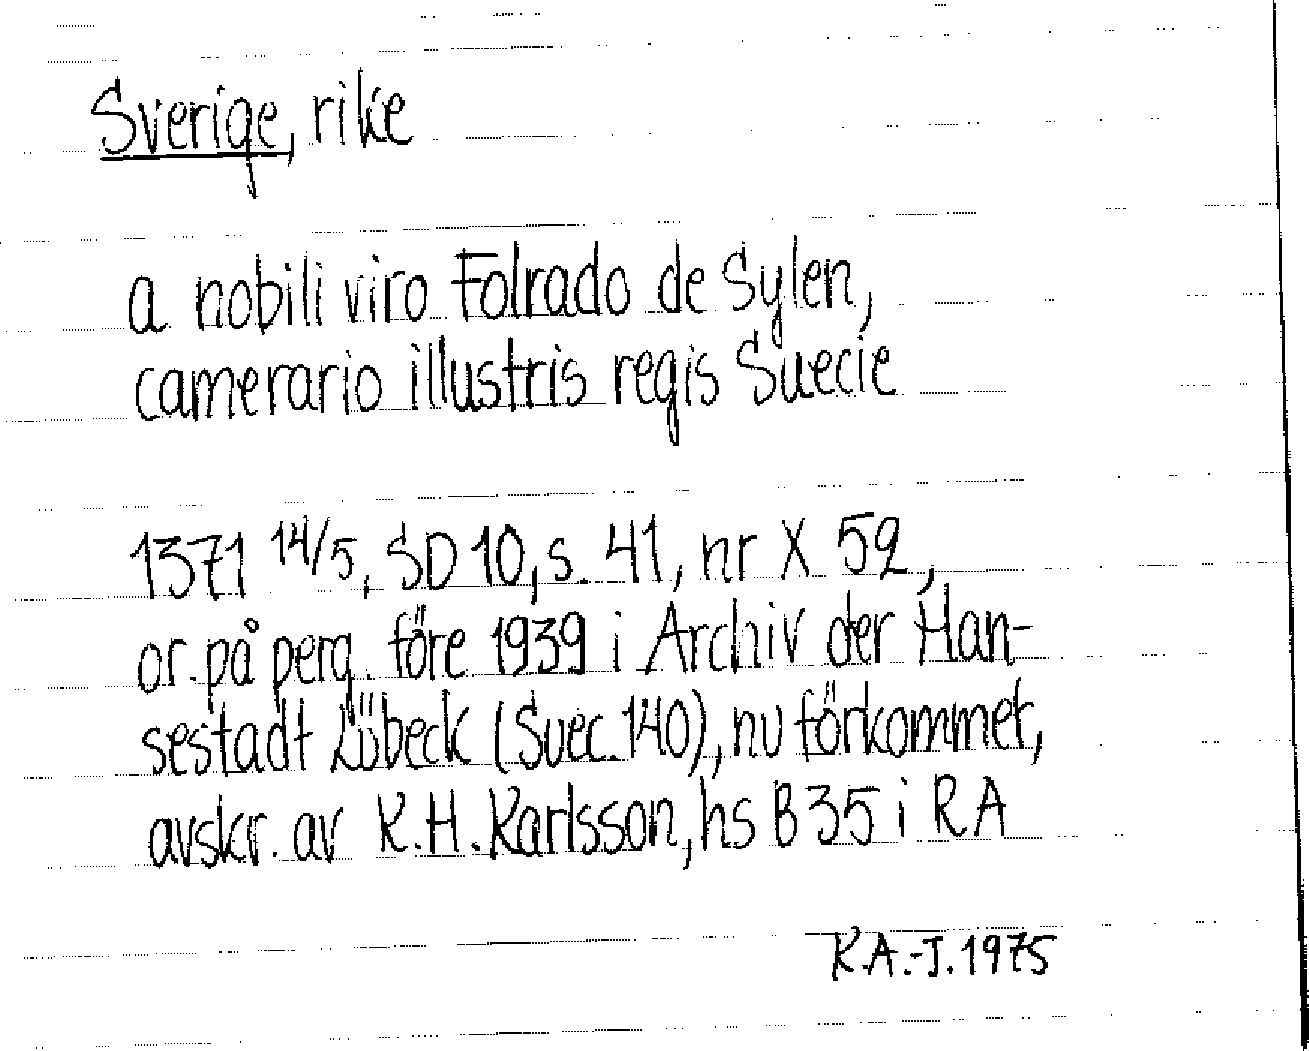 Sverige, rike
a nobili viro Folrado de Sylen,
camerario illustris regis Suecie
1371 14/5, SD 10, s. 41, nr X 52,
or. på perg. före 1939 i Archiv der Han-
sestadt Lübeck (Suec. 140), nu förkommet,
avskr. av K.H. Karlsson, hs B 35 i RA
K.A.-J. 1975